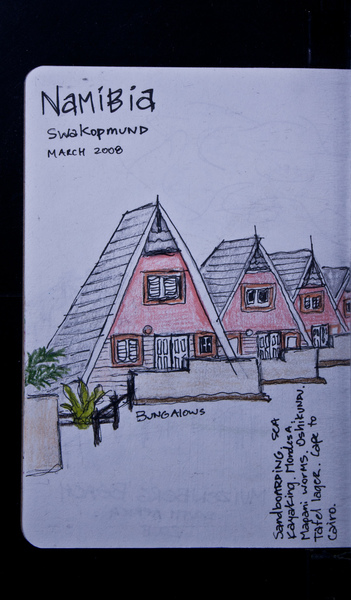 NAMIBIA
SWAKOPMUND
MARCH 2008
BUNGALOWS
SANDBOARDING, SEA
KAYAKING. MONDESA,
MAPANI WORMS. OSHIKUNDU.
TAFEL LAGER. CAPE TO
CAIRO.